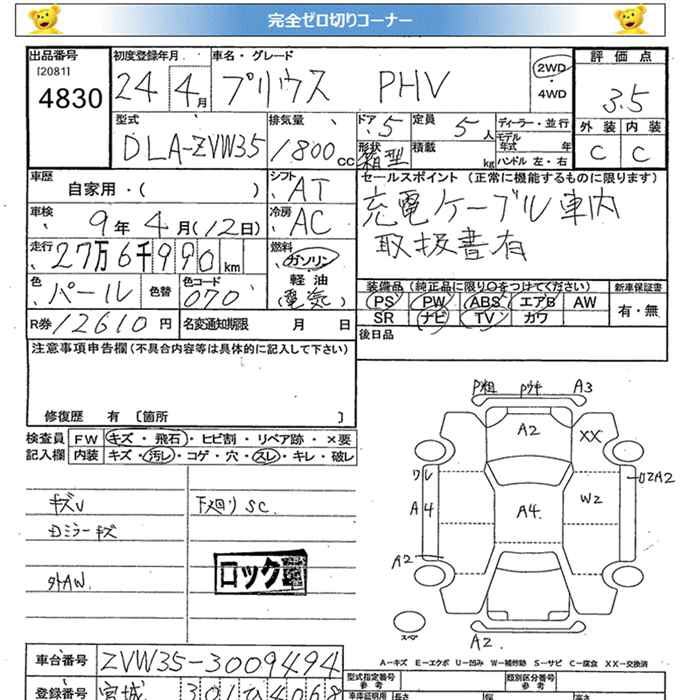 完全ゼロ切りコーナー
出品番号 初度登録年月 車名・グレード 評価点
[2081]
4830 24 4月 プリウス PHV 2WD・4WD 3.5
型式 排気量 ドア 定員 ディーラー・並行 外装 内装
DLA-ZVW35 1800cc 5 5人 モデル年式 年 C C
形状 箱型 積載 kg ハンドル 左・右
車歴 自家用・( ) シフト AT セールスポイント (正常に機能するものに限ります)
車検 9年4月(12日) 冷房 AC 充電ケーブル車内
取扱書有
走行 27万6千990km 燃料 ガソリン
軽油
(電気)
色 パール 色替 色コード 070
装備品 (純正品に限り○をつけてください) 新車保証書
PS PW ABS エアB AW 有・無
SR ナビ TV カワ
R券 12610円 名変通知期限 月 日 後日品
注意事項申告欄(不具合内容等は具体的に記入して下さい)
修復歴 有 [箇所 ]
検査員 FW キズ・飛石・ヒビ割・リペア跡・×要
記入欄 内装 キズ・汚レ・コゲ・穴・スレ・キレ・破レ
下廻りSC
外AW
ロック
A3
A2 XX
ワレ A4 A4 W2 A2
A2
スペア
A2
A-キズ E-エクボ U-凹み W-補修跡 S-サビ C-腐食 XX-交換済
車台番号 ZVW35-3009494
型式指定番号 類別区分番号
参考 参考
登録番号 宮城 301 ひ 4068
車庫証明用 長さ 幅 高さ